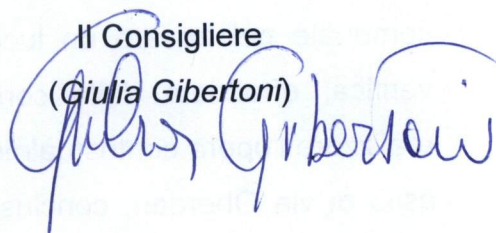 Il Consigliere
(Giulia Gibertoni)
Giulia Gibertoni